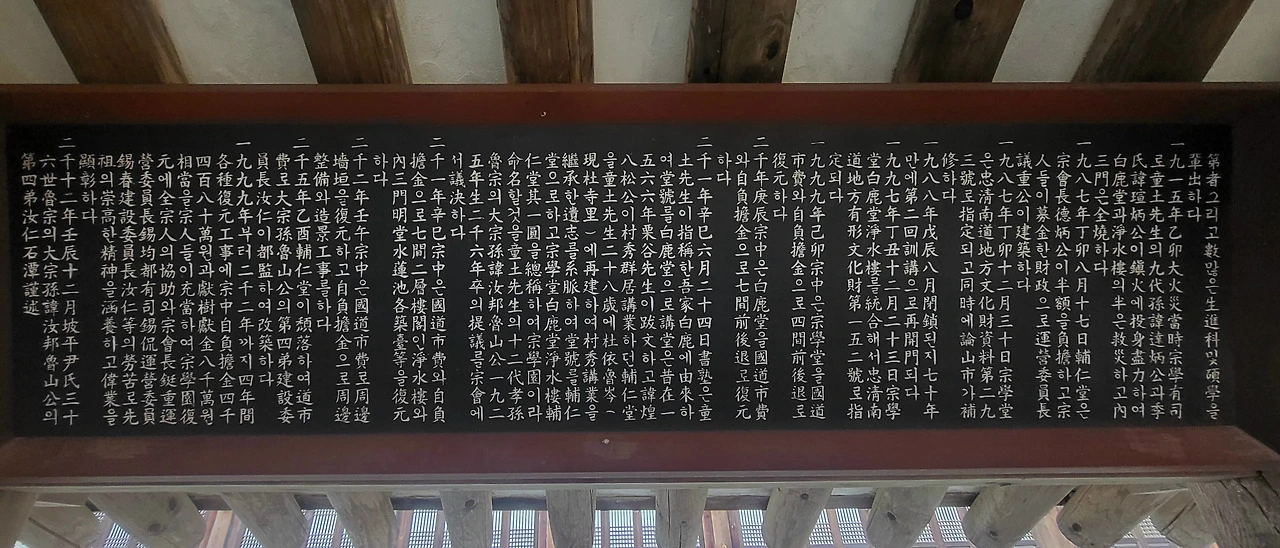 第者그리고 數많은 生進科및 碩學을
輩出하다
一九一五年乙卯大火災當時宗學有司
로童土先生의九代孫諱達炳公과季
氏諱瑄炳公이鎭火에投身盡力하여
白鹿堂과淨水樓의半은救災하고內
三門은全燒하다
一九八七年丁卯八月十七日輔仁堂은
宗會長德炳公이半額을負擔하고宗
人들이募金한財政으로運營委員長
議重公이建築하다
一九八七年丁卯十二月三十日宗學堂
은忠淸南道地方文化財資料第二九
三號로指定되고同時에論山市가補
修하다
一九八八年戊辰八月閉鎖된지七十年
만에第二回訓講으로再開門되다
一九九七年丁丑十二月二十三日宗學
堂白鹿堂淨水樓를統合해서忠淸南
道地方有形文化財第一五二號로指
定되다
一九九九年己卯宗中은宗學堂을國道
市費와自負擔金으로四間前後退로
復元하다
二千年庚辰宗中은白鹿堂을國道市費
와自負擔金으로七間前後退로復元
하다
二千一年辛巳六月二十四日書塾은童
土先生이指稱한吾家白鹿에由來하
여堂號를白鹿堂으로講堂은昔在一
五六六年栗谷先生이跋文하고諱煌
八松公이村秀群居講業하던輔仁堂
을童土先生二十八歲에杜依魯岑(
現杜寺里)에再建하여村秀講業을
繼承한遺志를系脈하여堂號를輔仁
堂으로하고宗學堂白鹿堂淨水樓輔
仁堂其一圓을總稱하여宗學園이라
命名할것을童土先生의十二代孝孫
魯宗의大宗孫諱汝邦魯山公一九二
五年生二千六年卒의提議를宗會에
서議決하다
二千一年辛巳宗中은國道市費와自負
擔金으로七間二層樓閣인淨水樓와
內三門明堂水蓮池各築臺等을復元
하다
二千二年壬午宗中은國道市費로周邊
墻垣을復元하고自負擔金으로周邊
整備와造景工事를하다
二千五年乙酉輔仁堂이頹落하여道市
費로大宗孫魯山公의第四弟建設委
員長汝仁이都監하여改築하다
一九九九年부터二千二年까지四年間
各種復元工事에宗中自負擔金四千
四百八十萬원과獻樹獻金八千萬원
相當을宗人들이充當하여宗學園復
元에全宗人의協助와宗會長鋌重運
營委員長錫均都有司錫侃運營委員
錫春建設委員長汝仁等의勞苦로先
祖의崇高한精神을涵養하고偉業을
顯彰하다
二千十二年壬辰十二月坡平尹氏三十
六世魯宗의大宗孫諱汝邦魯山公의
第四弟汝仁石潭謹述